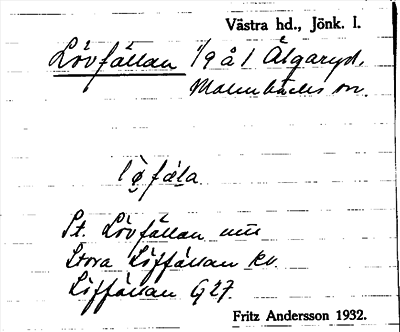 Västra hd., Jönk. l.
Lövfällan 1/9 å 1 Älgaryd,
Malmbäcks sn.
St. Lövfällan
Stora Löffällan kv.
Löffällan G 27.
Fritz Andersson 1932.